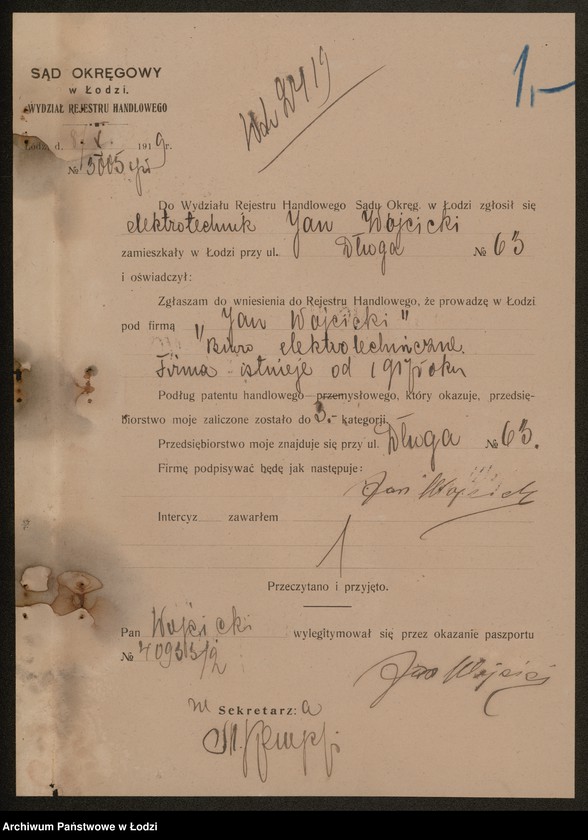 SĄD OKRĘGOWY
w Łodzi.
WYDZIAŁ REJESTRU HANDLOWEGO
Łódź d. X. 1919 r.
№ 3005
1,-
Do Wydziału Rejestru Handlowego Sądu Okręg. w Łodzi zgłosił się
elektrotechnik Jan Wojcicki
zamieszkały w Łodzi przy ul. Długa № 63
i oświadczył:
Zgłaszam do wniesienia do Rejestru Handlowego, że prowadzę w Łodzi
pod firmą „Jan Wojcicki"
Biuro elektrotechniczne.
Firma istnieje od 1917 roku
Podług patentu handlowego przemysłowego, który okazuje, przedsię-
biorstwo moje zaliczone zostało do 3.- kategorji.
Przedsiębiorstwo moje znajduje się przy ul. Długa № 63.
Firmę podpisywać będę jak następuje:
Jan Wojcicki
Intercyz zawarłem
Przeczytano i przyjęto.
Pan Wojcicki wylegitymował się przez okazanie paszportu
№
Jan Wojcicki
Sekretarz: a
Archiwum Państwowe w Łodzi